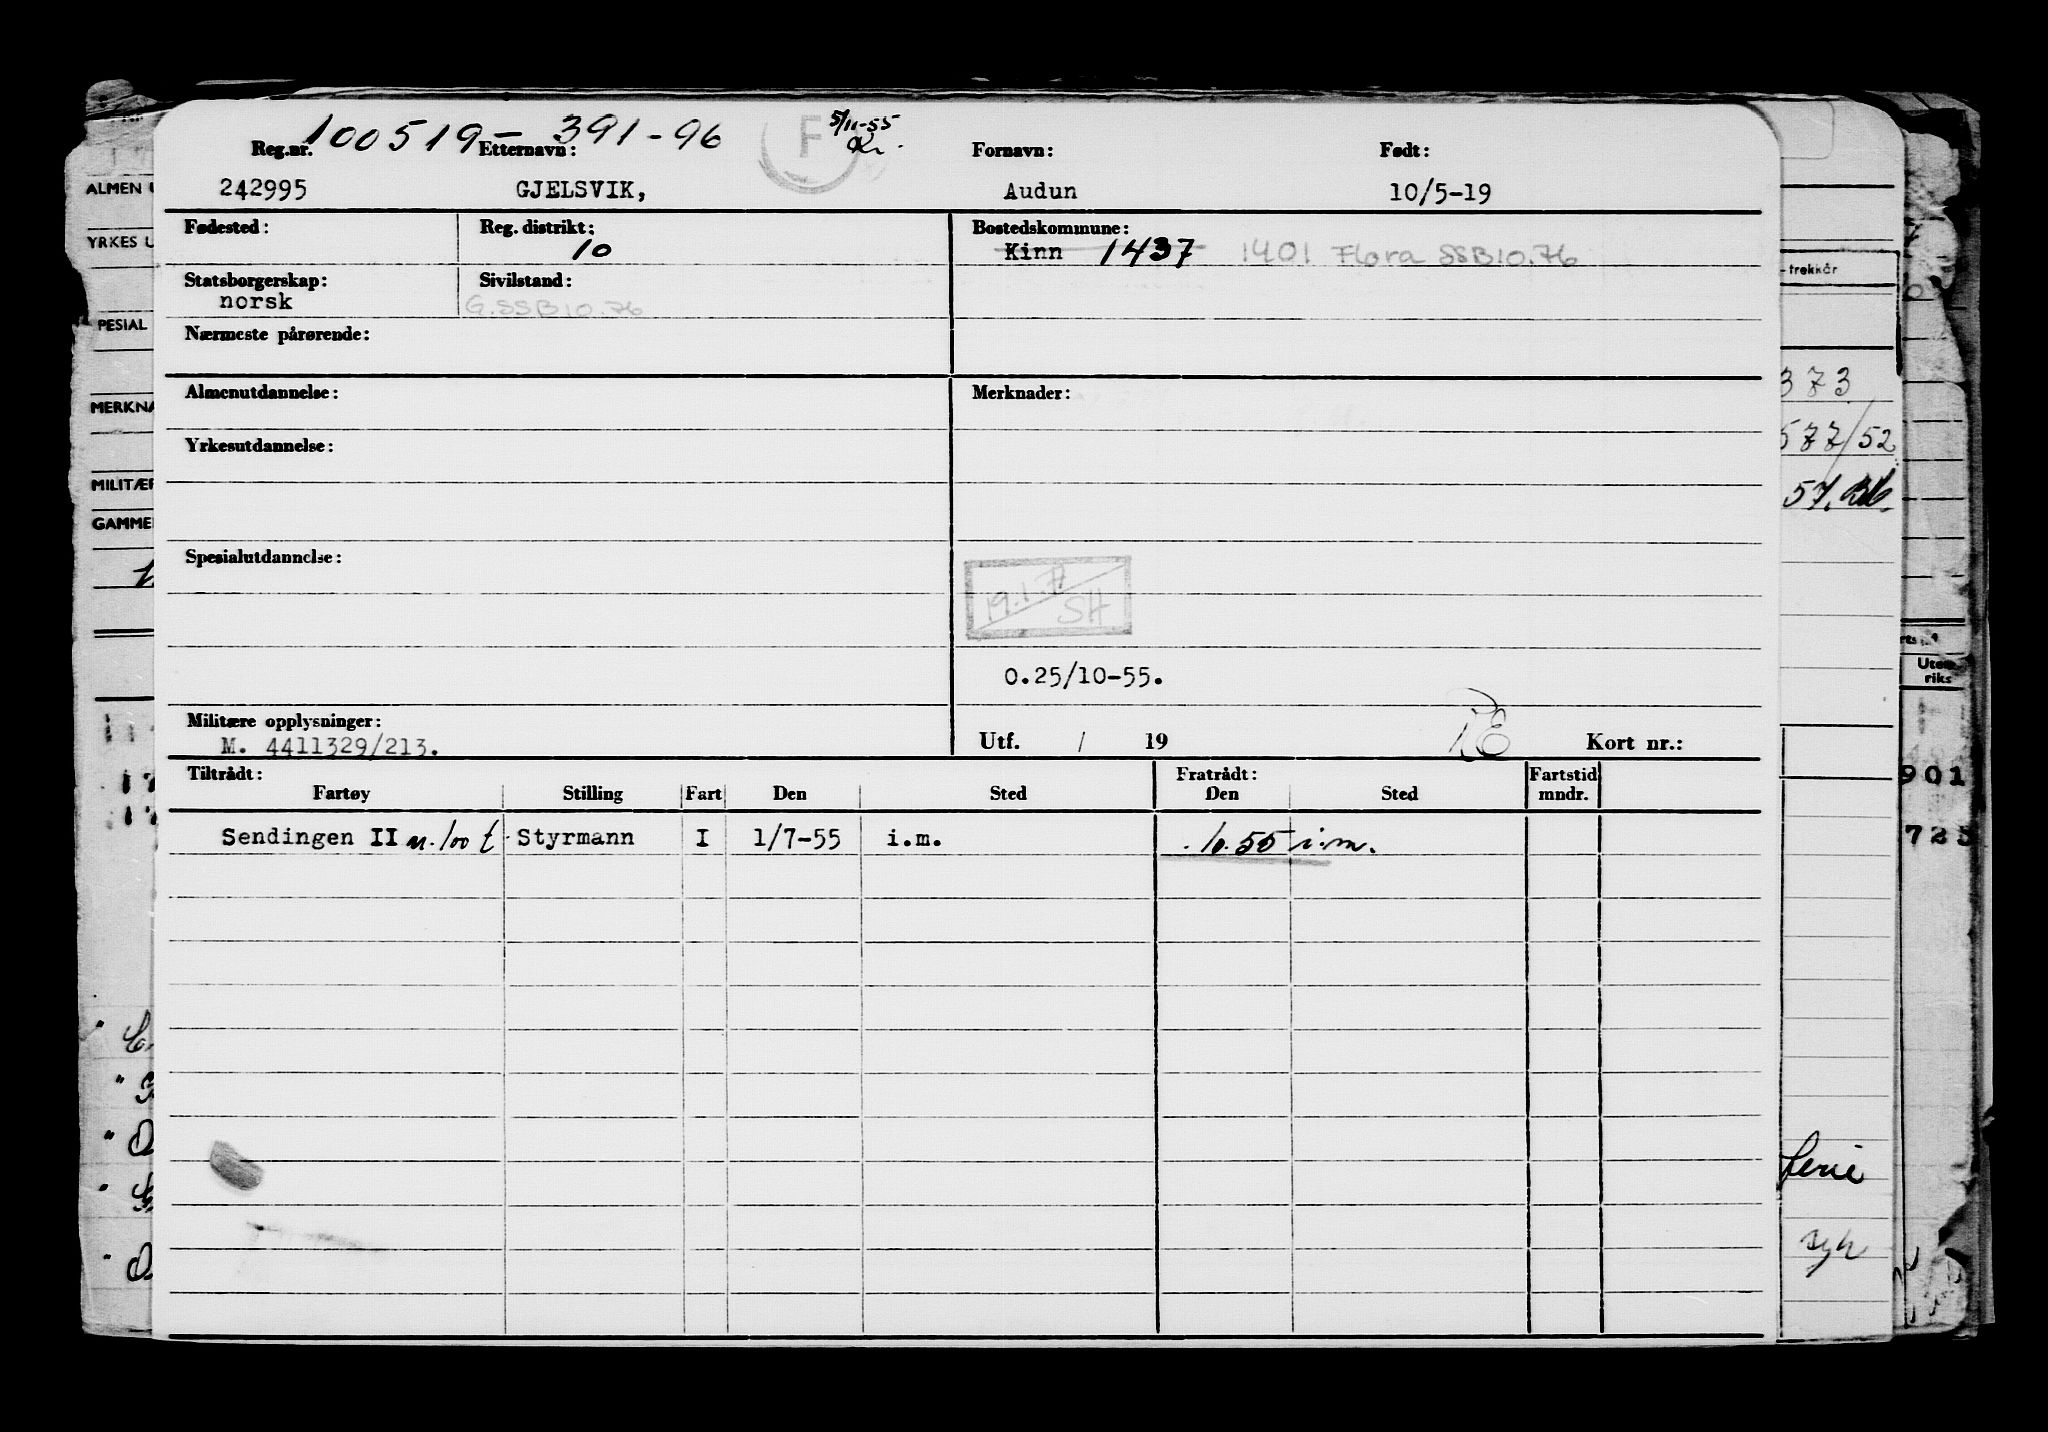 100519-391-96 F 5/11-55
Reg.nr. Etternavn: Fornavn: Født:
242995 GJELSVIK, Audun 10/5-19
Fødested: Reg. distrikt: Bostedskommune:
10 Kinn 1437 1401 Flora SSB10.76
Statsborgerskap: Sivilstand:
norsk G.SSB10.76
Nærmeste pårørende:
Almenutdannelse: Merknader:
Yrkesutdannelse:
Spesialutdannelse:
SH
0.25/10-55.
Militære opplysninger:
M. 4411329/213.
Utf. / 19 Kort nr.:
Tiltrådt: Fratrådt: Fartstid
Fartøy Stilling Fart Den Sted Den Sted mndr.
Sendingen II u. 100 t. Styrmann I 1/7-55 i.m. .10.55 i.m.
ALMEN
YRKES U
PESIAL
MERKNA
MILITÆR
GAMME
-trekkår
373
577/52
57.
Uten-
riks
901
725
ferie
syk